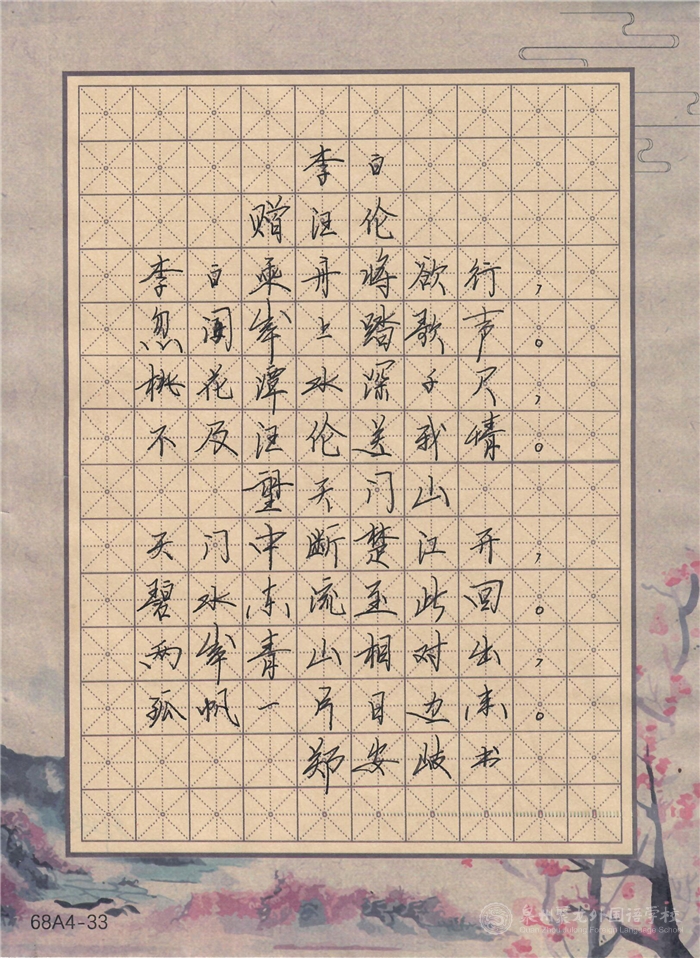 李白
赠汪伦
李白乘舟将欲行，
忽闻岸上踏歌声。
桃花潭水深千尺，
不及汪伦送我情。
望天门山
天门中断楚江开，
碧水东流至此回。
两岸青山相对出，
孤帆一片日边来。
郑安岐书
68A4-33
泉州聚龙外国语学校
Quanzhou Julong Foreign Language School